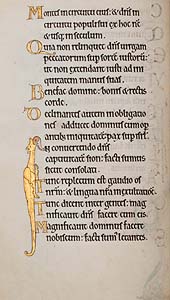 Montes in circuitu eius: & dñs in
circuitu populi sui ex hoc nc̄
& usq; in seculum.
Quia non relinquet dñs uirgam
peccatorum sup sortē iustorū:
ut non extendant iusti ad ini
quitatem manus suas.
Benefac domine: bonis & rectis
corde.
Declinantes autem in obligatio
nes adducet dominus cum op
iniquitatē: pax sup isrł.
In conuertendo dñs
captiuitatē sion: facti sumus
sicut consolati.
Tunc repletum est gaudio os
nrm̄: & lingua nrā in exultatione.
Tunc dicent inter gentes: mag
nificauit dñs facere cum eis.
Magnificauit dominus facere
nobiscum: facti sumus letantes.